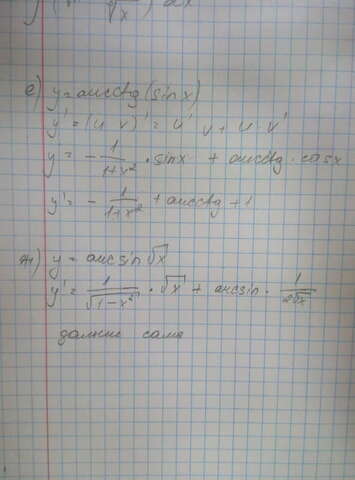 е) y = arcctg (sin x)
y' = (u · v)' = u' v + u · v'
y' = - 1/(1+x²) · sinx + arcctg · cosx
y' = - 1/(1+x²) + arcctg + 1
ж) y = arcsin √x
y' = 1/√(1-x²) · √x + arcsin · 1/(2√x)
дальше сама